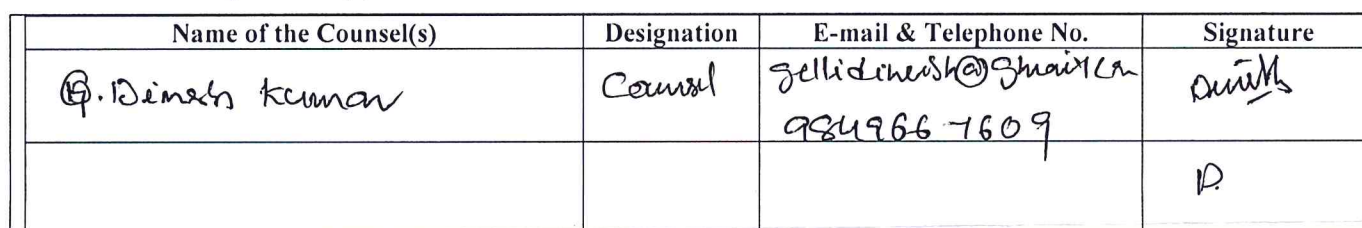 Name of the Counsel(s) Designation E-mail & Telephone No. Signature
G. Dinesh Kumar Counsel gellidinesh@gmail.com
9849667609
D.